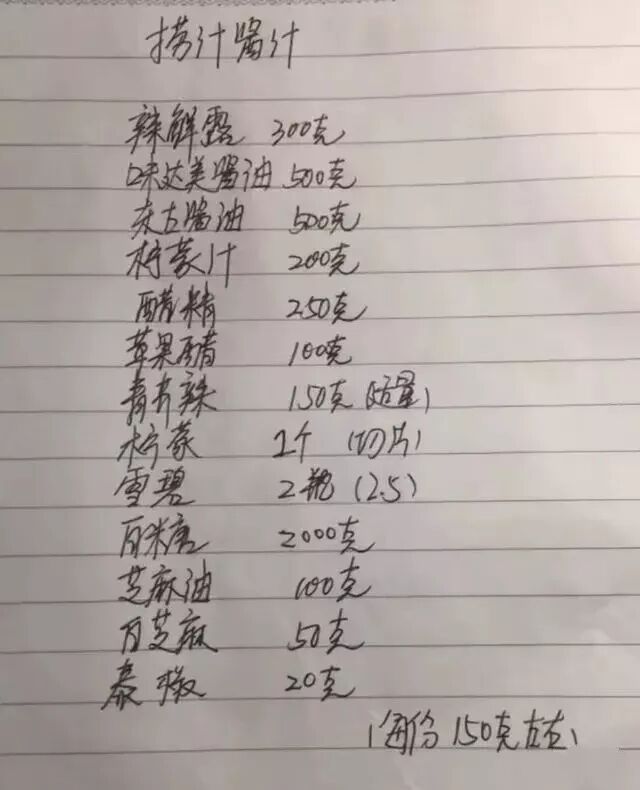 捞汁酱汁
辣鲜露 300克
味达美酱油 500克
东古酱油 500克
柠檬汁 200克
醋精 250克
苹果醋 100克
青芥辣 150克(适量)
柠檬 2个 (切片)
雪碧 2瓶 (2.5)
白米唐 2000克
芝麻油 100克
白芝麻 50克
泰椒 20克
(每份150克左右)